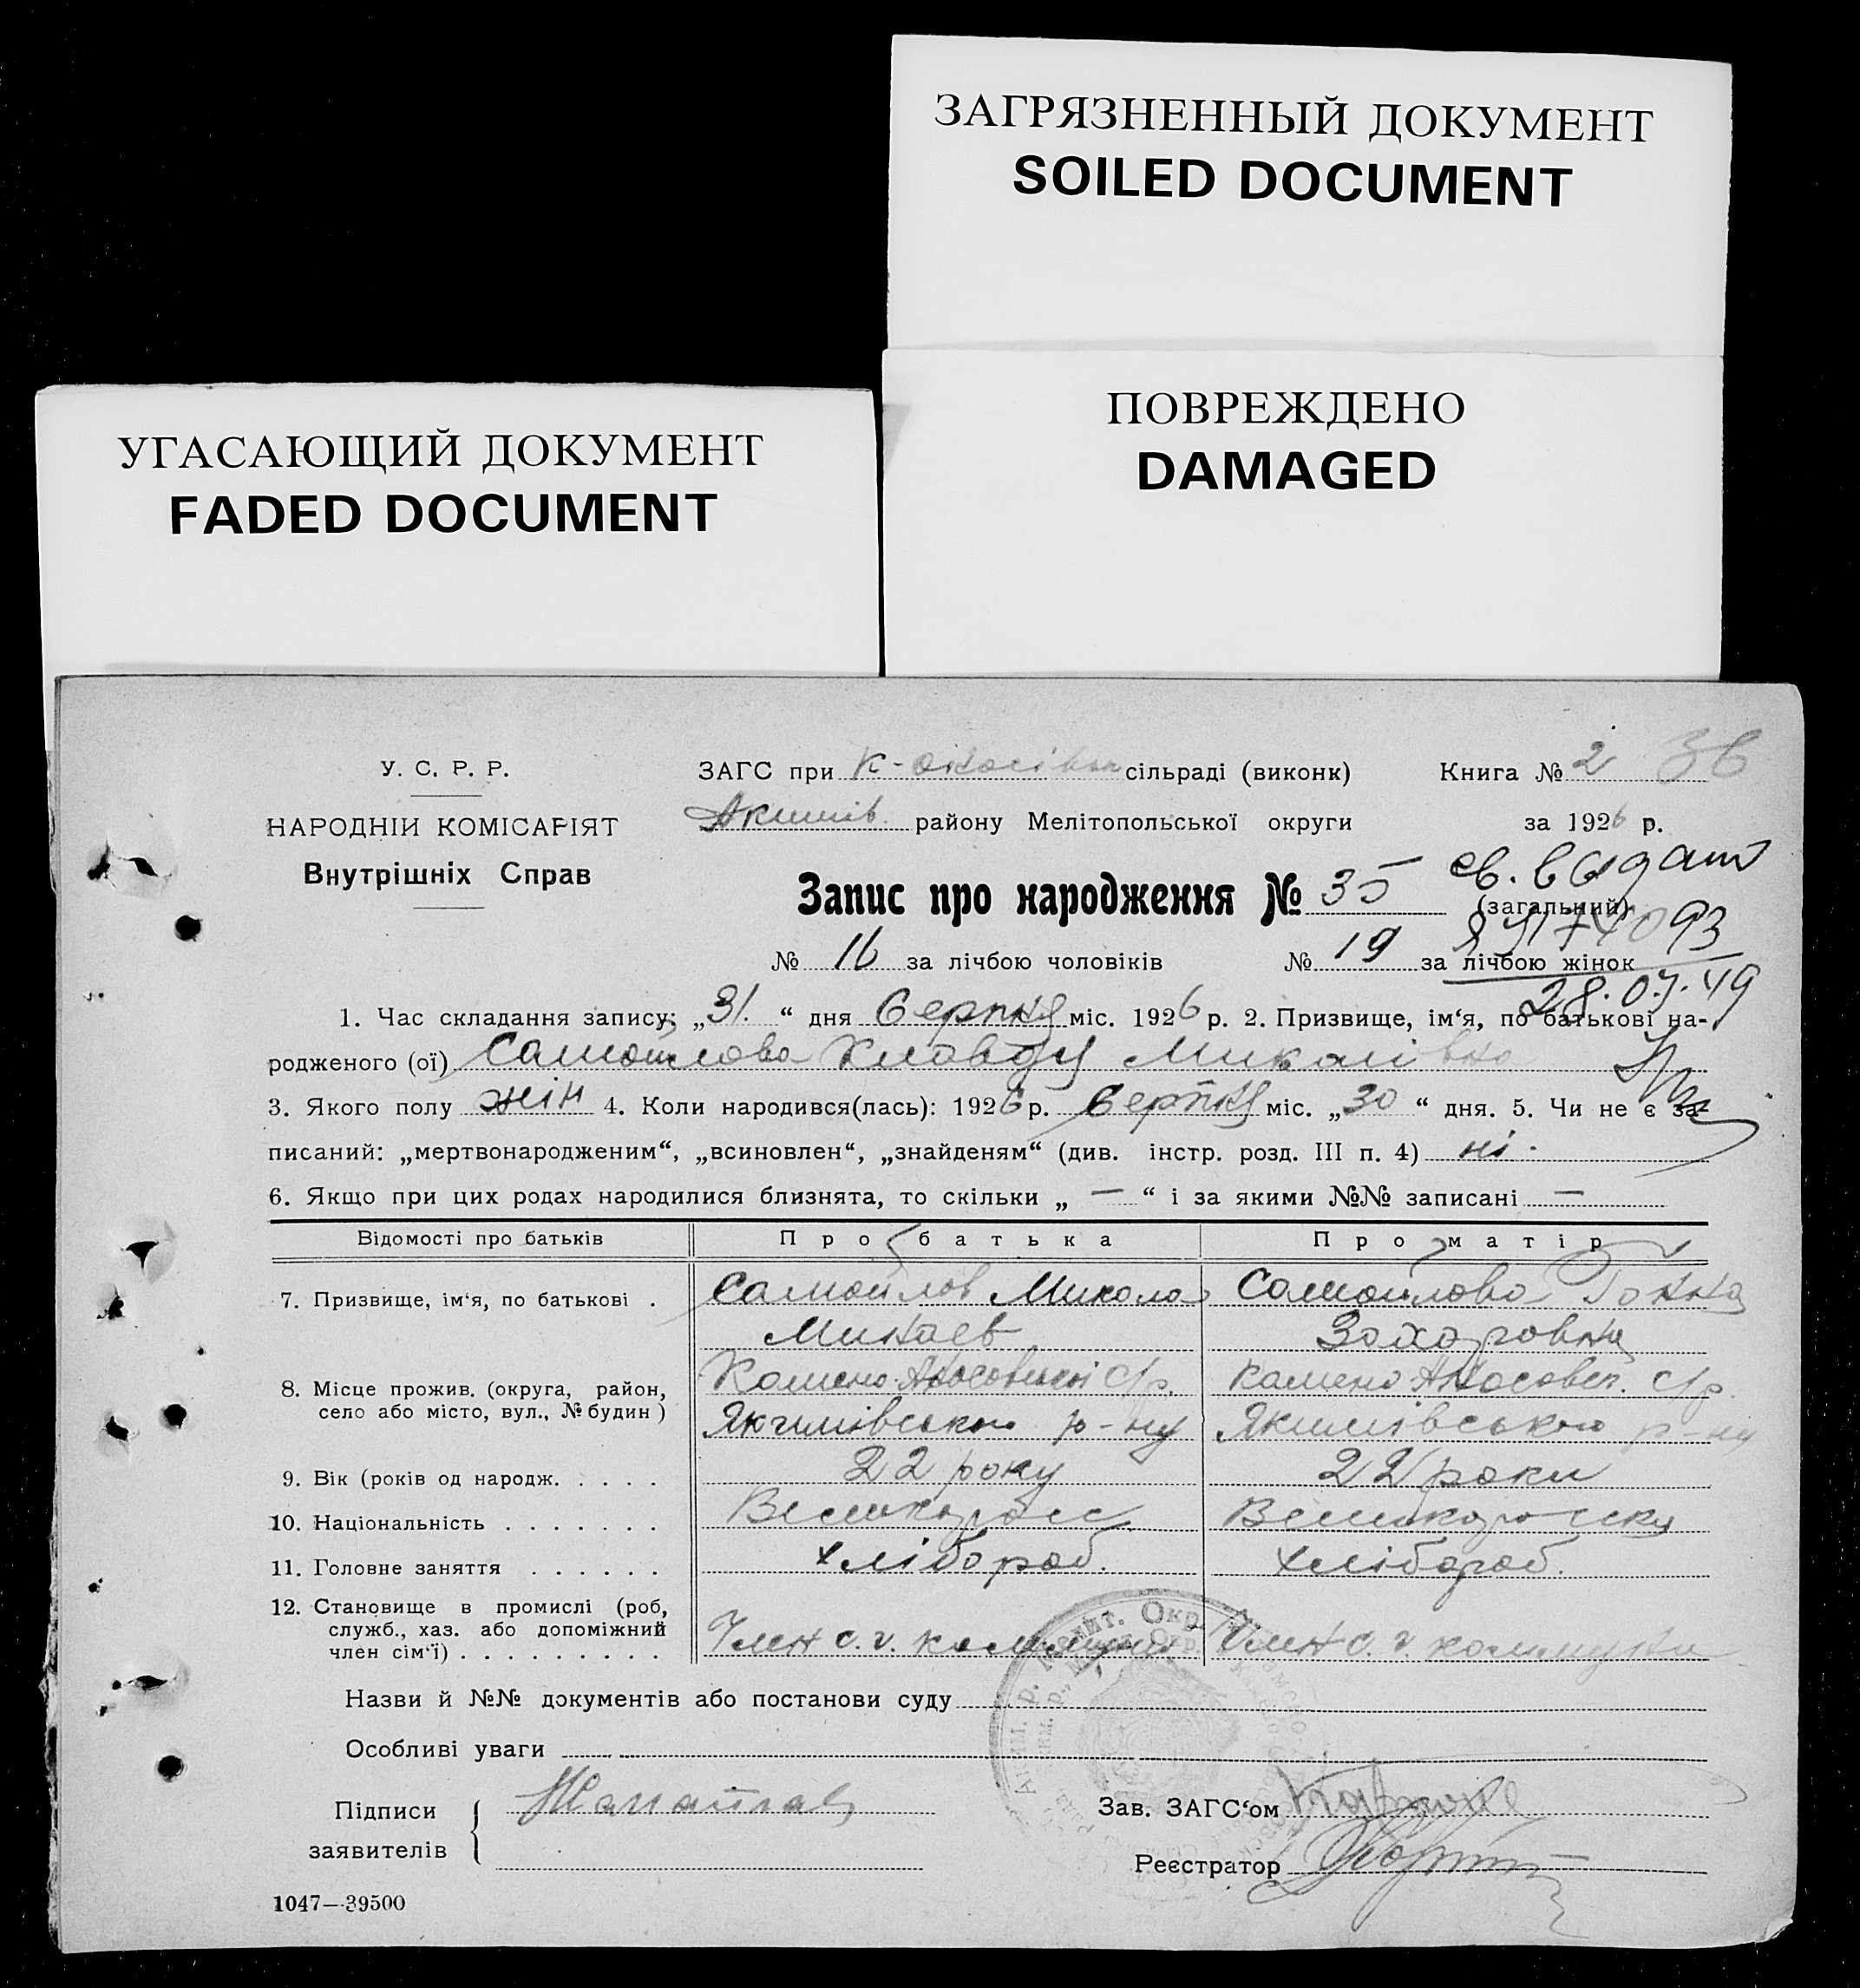 ЗАГРЯЗНЕННЫЙ ДОКУМЕНТ
SOILED DOCUMENT
ПОВРЕЖДЕНО
DAMAGED
УГАСАЮЩИЙ ДОКУМЕНТ
FADED DOCUMENT
У. С. Р. Р.
НАРОДНІЙ КОМІСАРІЯТ
Внутрішніх Справ
ЗАГС при К- сільраді (виконк)
Книга № 2 36
Акимів. району Мелітопольської округи
за 1926 р.
Запис про народження № 35 (загальний)
св. выдано
№ 16 за лічбою чоловіків № 19 за лічбою жінок
28.07.49
1. Час складання запису: „31. “ дня Серпня міс. 1926 р. 2. Призвище, ім‘я, по батькові на-
родженого (ої) Самойлова Клавдя Миколівна
3. Якого полу жін 4. Коли народився(лась): 1926 р. Серпня міс. „30 “ дня. 5. Чи не є за-
писаний: „мертвонародженим“, „всиновлен“, „знайденям“ (див. інстр. розд. III п. 4) ні.
6. Якщо при цих родах народилися близнята, то скільки „ — “ і за якими №№ записані —
Відомості про батьків Про батька Про матір
7. Призвище, ім‘я, по батькові . Самойлов Микола Самойлова Ганна
Минаев Захаровна
8. Місце прожив. (округа, район, село або місто, вул., № будин ) Камено-Акосовської С/р. Камено Акосовск. С/р.
Якимівського р-ну Якимівського р-ну
9. Вік (років од народж. . . . . 22 року 22 роки
10. Національність . . . . . . . Великорос Великоросска
11. Головне заняття . . . . . . хлібороб. хлібороб.
12. Становище в промислі (роб, служб., хаз. або допоміжний член сім‘ї) . . . . . . . . . Член с.г. комуни Член с.г. комуни
Назви й №№ документів або постанови суду
Особливі уваги
Підписи заявителів
Зав. ЗАГС‘ом
Реєстратор
1047—39500